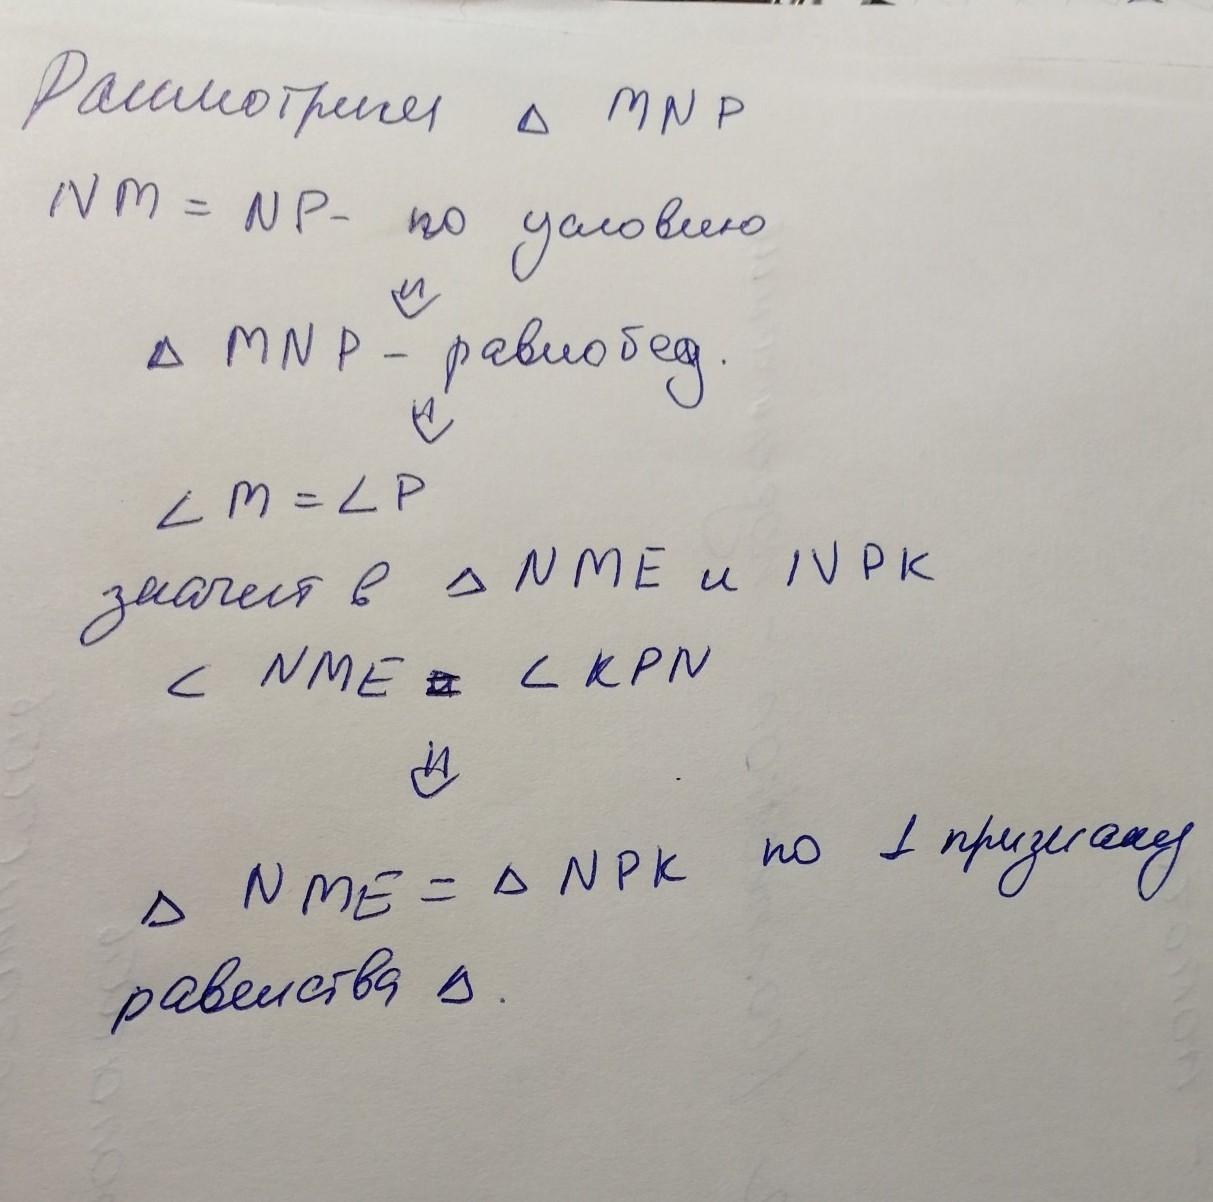 Рассмотрим △ MNP
NM = NP - по условию
⇓
△ MNP - равнобед.
⇓
∠ M = ∠ P
значит в △ NME и NPK
∠ NME = ∠ KPN
⇓
△ NME = △ NPK по 1 признаку
равенства △.